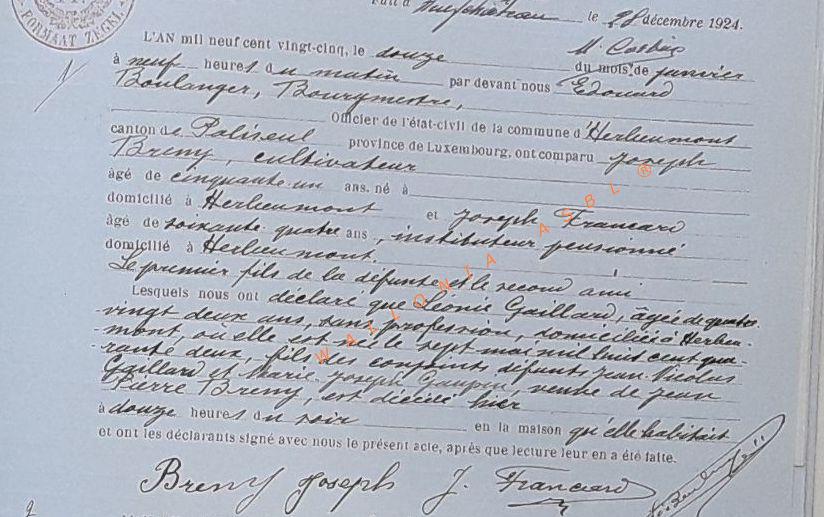 FORMAAT ZEGEL
Fait à Neufchâteau le 28 décembre 1924.
L'AN mil neuf cent vingt-cinq, le douze
du mois de janvier
à neuf heures du matin par devant nous Edouard
Boulanger, Bourgmestre,
Officier de l'état-civil de la commune d'Herbeumont
canton de Paliseul province de Luxembourg, ont comparu Joseph
Breny, cultivateur
âgé de cinquante-un ans. né à
domicilié à Herbeumont et Joseph Francard
âgé de soixante quatre ans, instituteur pensionné
domicilié à Herbeumont.
Le premier fils de la défunte et le second ami
Lesquels nous ont déclaré que Léonie Gaillard, âgée de quatre-
vingt deux ans, sans profession, domiciliée à Herbeu-
mont, où elle est née le sept mai mil huit cent qua-
rante deux, fille des conjoints défunts Jean Nicolas
Gaillard et Marie Joseph veuve de Jean
Pierre Breny, est décédée hier
à douze heures du soir en la maison qu'elle habitait
et ont les déclarants signé avec nous le présent acte, après que lecture leur en a été faite.
Breny Joseph J. Francard
WALLONIA ASBL ®